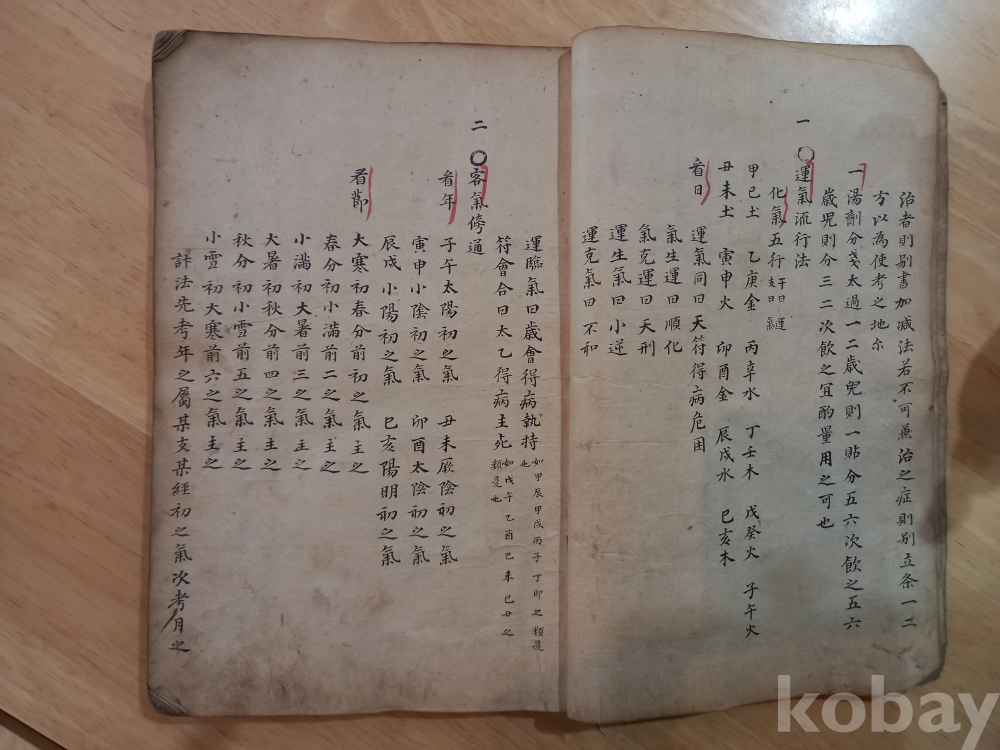 治者則別書加减法若不可兼治之症則別立条一二
方以為使考之地尔
一湯劑分戔太過一二歲兒則一貼分五六次飲之五六
歲児則分三二次飲之宜酌量用之可也
一〇運氣流行法
化氣五行
甲己土 乙庚金 丙辛水 丁壬木 戊癸火 子午火
丑未土 寅申火 卯酉金 辰戌水 巳亥木
看日 運氣同曰天符得病危困
氣生運曰順化
氣克運曰天刑
運生氣曰小逆
運克氣曰不和
運臨氣曰歲會得病執持 如甲辰甲戌丙子丁卯之類是也
符會合曰太乙得病主死 如戊午乙酉己未己丑之類是也
二〇客氣傍通
看年 子午太陽初之氣 丑未厥陰初之氣
寅申小陰初之氣 卯酉太陰初之氣
辰戌小陽初之氣 巳亥陽明初之氣
看節 大寒初春分前初之氣主之
春分初小滿前二之氣主之
小滿初大暑前三之氣主之
大暑初秋分前四之氣主之
秋分初小雪前五之氣主之
小雪初大寒前六之氣主之
計法先考年之屬某支某經初之氣次考月之
kobay